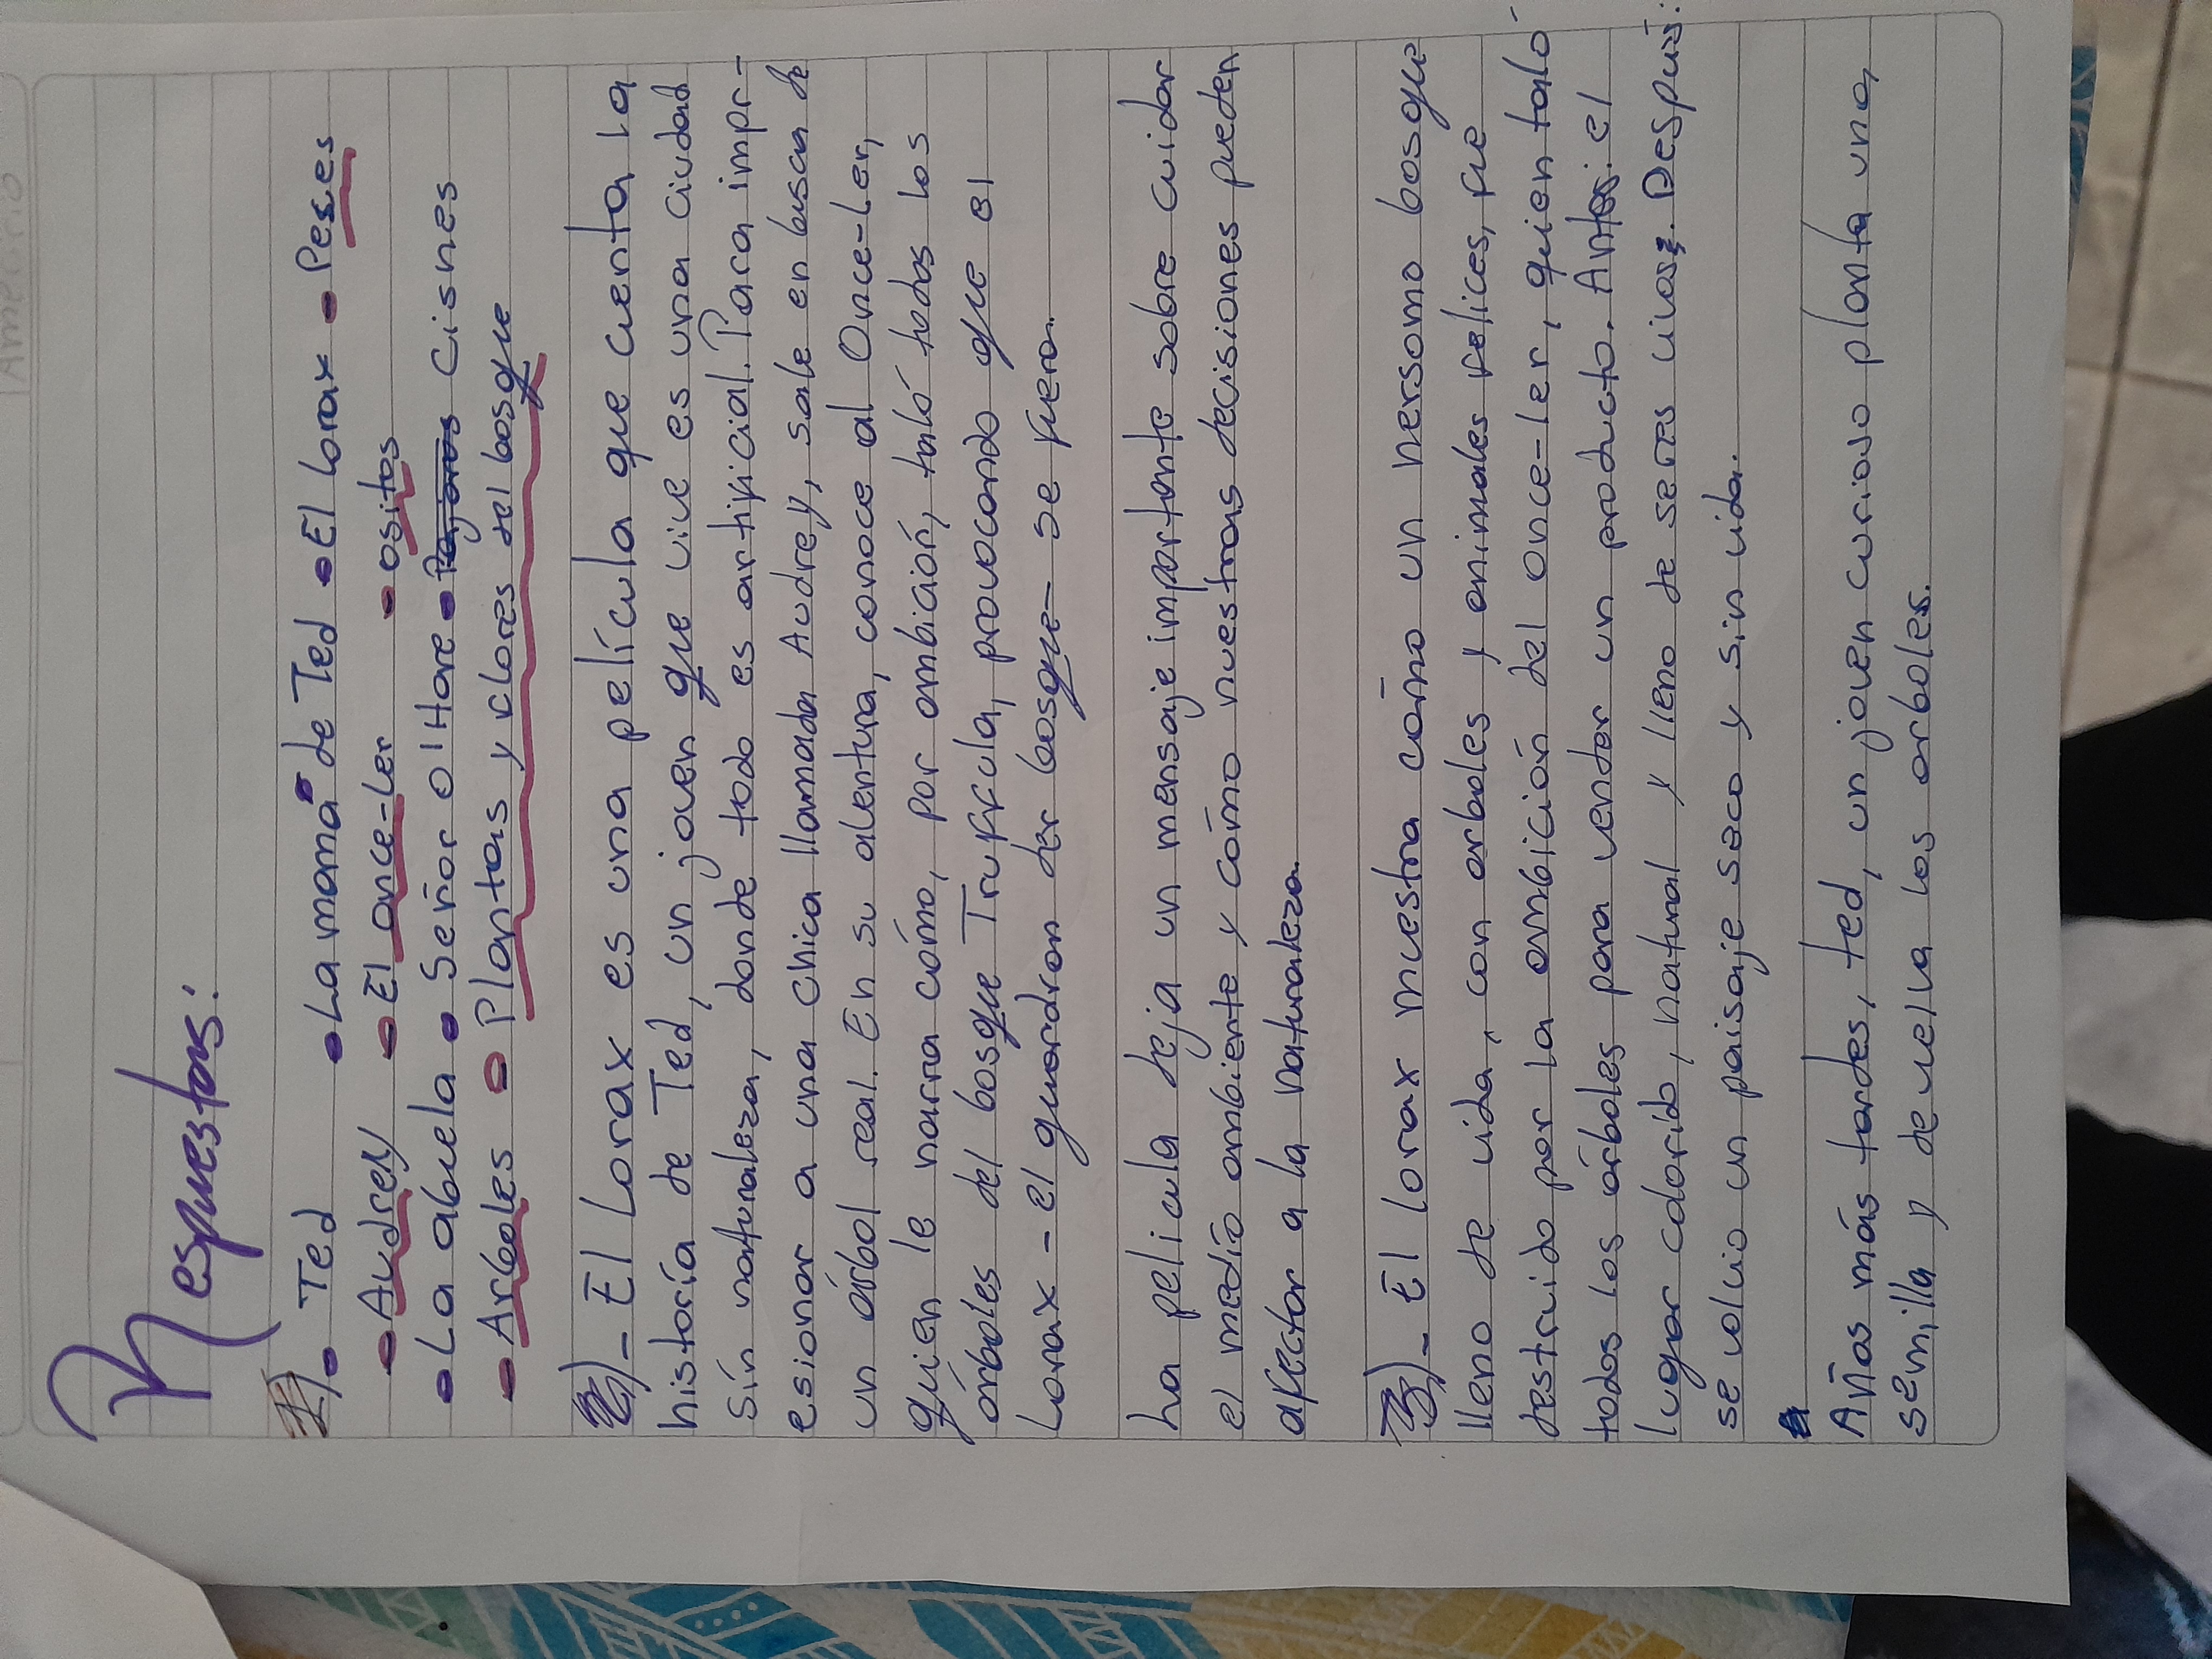 Respuestas:
1)• Ted •La mamá de Ted •El lorax •Peses
•Audrey •El once-ler •ositos
•La abuela •Señor O'Hare • Cisnes
•Arboles •Plantas y flores del bosque
2)- El Lorax es una película que cuenta la
historía de Ted, un joven que vive es una ciudad
sin naturaleza, donde todo es artificial. Para impr-
esionar a una chica llamada Audrey, sale en busca de
un árbol real. En su aventura, conoce al Once-ler,
quien le narra cómo, por ambición, taló todos los
árboles del bosque Truffula, provocando que el
Lorax - el guardran der bosque - se fuera.
La pelicula deja un mensaje importante sobre cuidar
el medio ambiente y cómo nuestras decisiones pueden
afectar a la naturaleza.
3)- El lorax muestra cómo un hersomo bosque
lleno de vida, con arboles y animales felices, fue
destruido por la ambición del once-ler, quien taló
todos los árboles para vender un producto. Antes: el
lugar colorido, natural y lleno de seres vivos. Despuis:
se volvio un paisaje seco y sin vida.
Años más tardes, ted, un joven curioso planta una,
semilla y de vuelva los arboles.